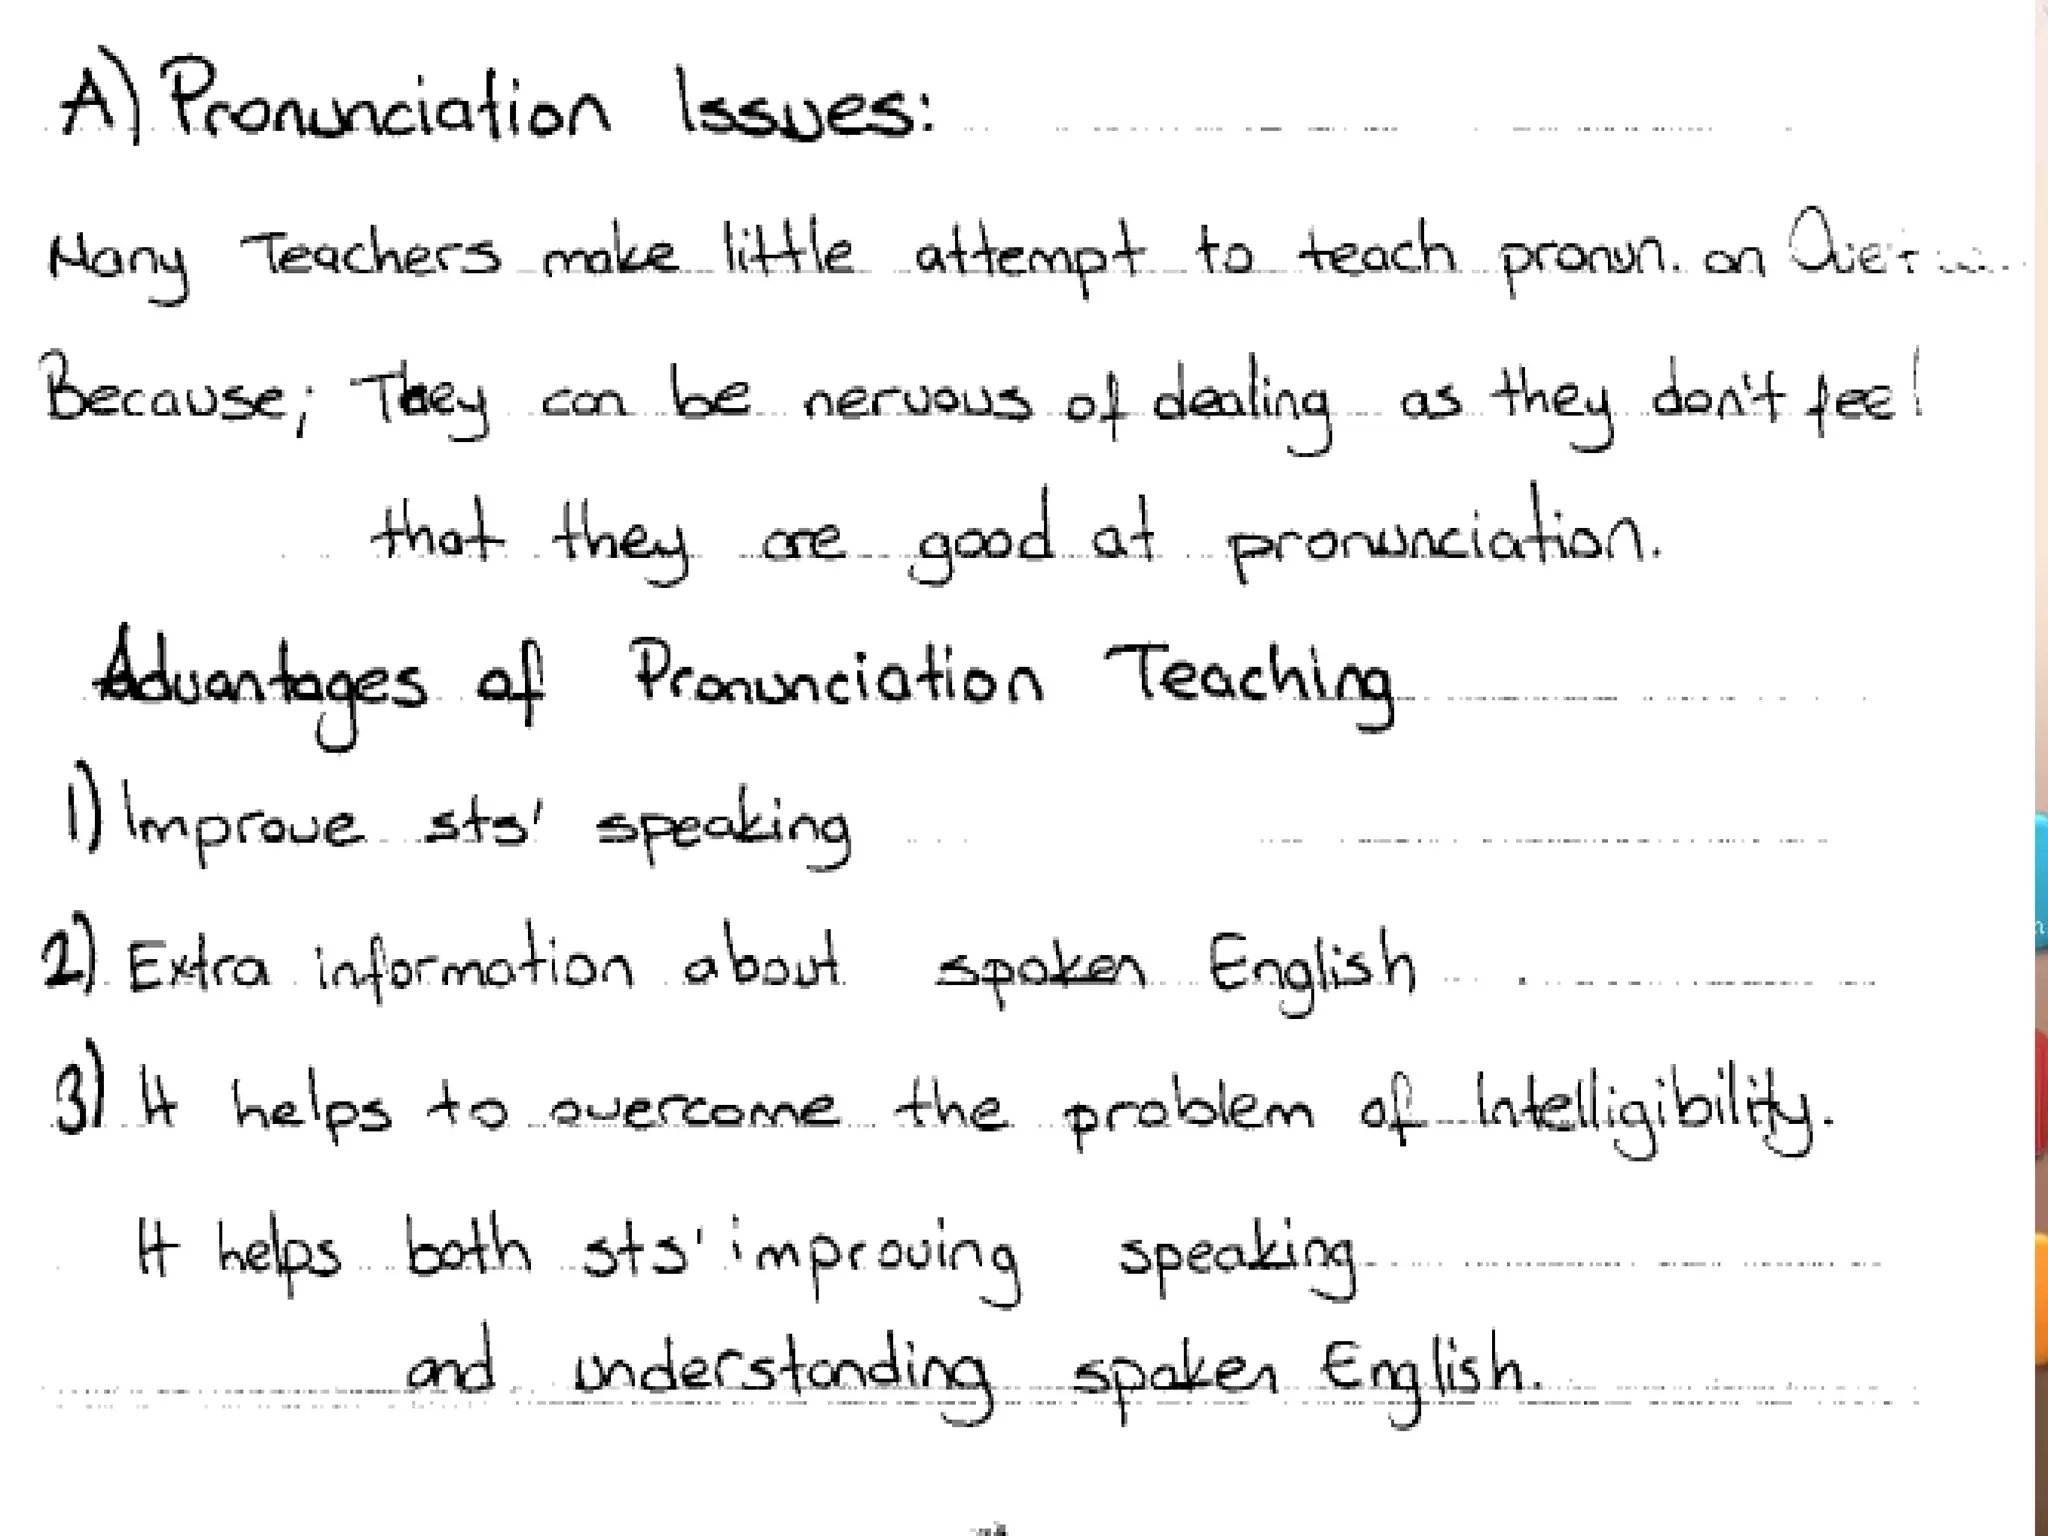 A) Pronunciation Issues:
Many Teachers make little attempt to teach pronun. on
Because; They can be nervous of dealing as they don't feel
that they are good at pronunciation.
Advantages of Pronunciation Teaching
1) Improve sts' speaking
2) Extra information about spoken English
3) It helps to overcome the problem of Intelligibility.
It helps both sts' improving speaking
and understanding spoken English.